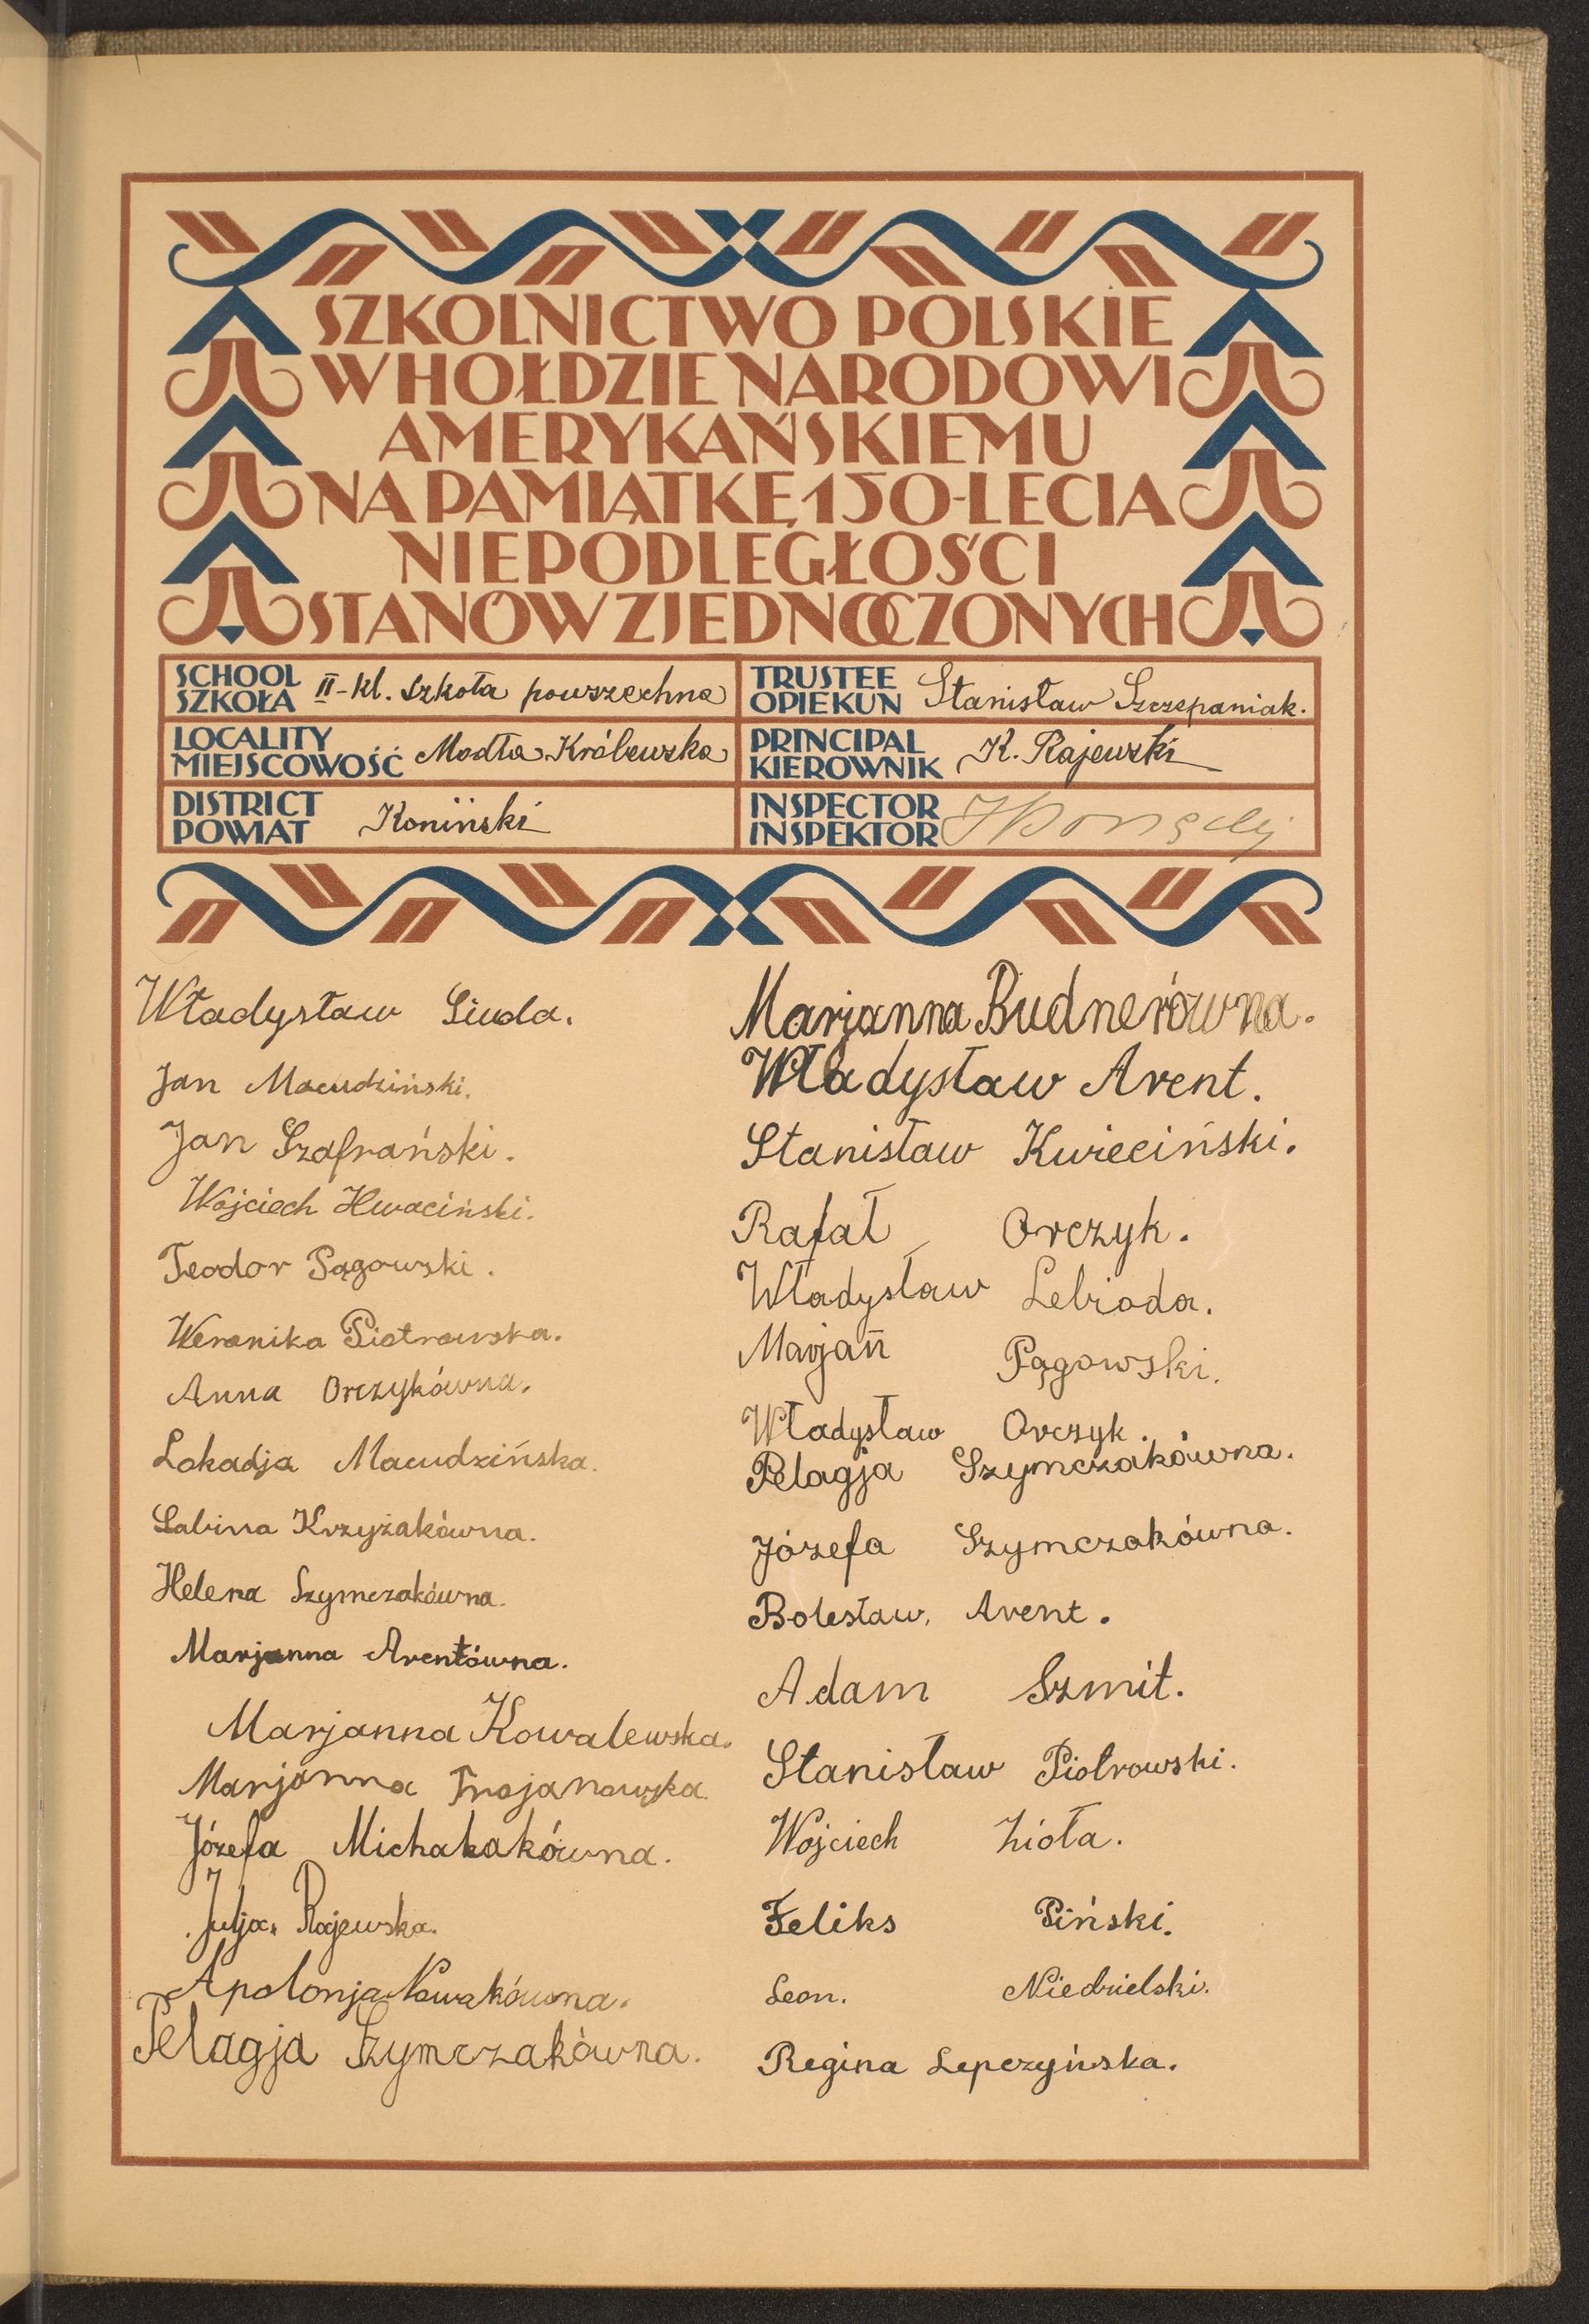 SZKOLNICTWO POLSKIE
W HOŁDZIE NARODOWI
AMERYKAŃSKIEMU
NA PAMIĄTKĘ 150-LECIA
NIEPODLEGŁOŚCI
STANÓW ZJEDNOCZONYCH
SCHOOL
SZKOŁA II-kl. Szkoła powszechna
TRUSTEE
OPIEKUN Stanisław Szczepaniak.
LOCALITY
MIEJSCOWOŚĆ Modła Królewska
PRINCIPAL
KIEROWNIK K. Rajewski
DISTRICT
POWIAT Koniński
INSPECTOR
INSPEKTOR
Władysław Siuda.
Jan Macudziński.
Jan Szafrański.
Wojciech Kwaciński.
Teodor Pągowski.
Weronika Piotrowska.
Anna Orczykówna.
Lokadja Macudzińska.
Sabina Krzyżakówna.
Helena Szymczakówna.
Marjanna Arentówna.
Marjanna Kowalewska.
Marjanna Trojanowska.
Józefa Michalakówna.
Julja Rajewska.
Apolonja Nowakówna.
Pelagja Szymczakówna.
Marjanna Budnerówna.
Władysław Arent.
Stanisław Kwieciński.
Rafał Orczyk.
Władysław Lebioda.
Marjan Pągowski.
Władysław Orczyk.
Pelagja Szymczakówna.
Józefa Szymczakówna.
Bolesław Arent.
Adam Szmit.
Stanisław Piotrowski.
Wojciech Zioła.
Feliks Piński.
Leon. Niedzielski.
Regina Lepczyńska.